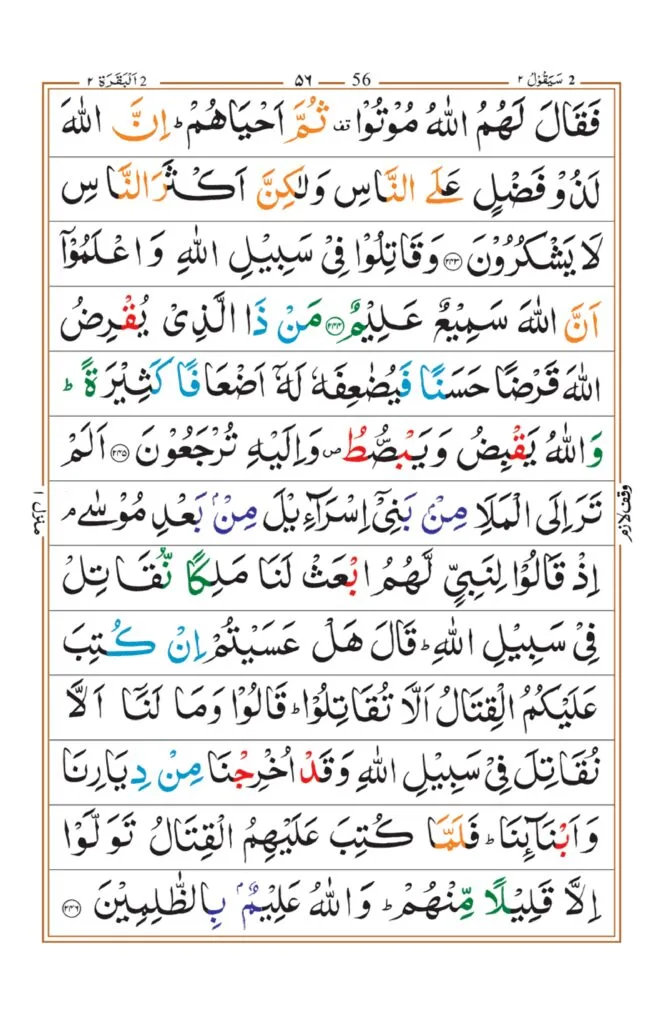 2 سَيَقُوْلُ ٢ 56 ٥٦ 2 اَلْبَقَرَة ٢
فَقَالَ لَهُمُ اللّٰهُ مُوْتُوْا قف ثُمَّ اَحْيَاهُمْ ؕ اِنَّ اللّٰهَ
لَذُوْ فَضْلٍ عَلَى النَّاسِ وَلٰكِنَّ اَكْثَرَ النَّاسِ
لَا يَشْكُرُوْنَ ﴿۲۴۳﴾ وَقَاتِلُوْا فِىْ سَبِيْلِ اللّٰهِ وَاعْلَمُوْۤا
اَنَّ اللّٰهَ سَمِيْعٌ عَلِيْمٌ ﴿۲۴۴﴾ مَنْ ذَا الَّذِىْ يُقْرِضُ
اللّٰهَ قَرْضًا حَسَنًا فَيُضٰعِفَهٗ لَهٗۤ اَضْعَافًا كَثِيْرَةً ؕ
وَاللّٰهُ يَقْبِضُ وَيَبْصُۜطُ ص وَاِلَيْهِ تُرْجَعُوْنَ ﴿۲۴۵﴾ اَلَمْ
تَرَ اِلَى الْمَلَاِ مِنْۢ بَنِىْۤ اِسْرَآءِيْلَ مِنْۢ بَعْدِ مُوْسٰى ۘ
اِذْ قَالُوْا لِنَبِىٍّ لَّهُمُ ابْعَثْ لَنَا مَلِكًا نُّقَاتِلْ
فِىْ سَبِيْلِ اللّٰهِ ؕ قَالَ هَلْ عَسَيْتُمْ اِنْ كُتِبَ
عَلَيْكُمُ الْقِتَالُ اَلَّا تُقَاتِلُوْا ؕ قَالُوْا وَمَا لَنَاۤ اَلَّا
نُقَاتِلَ فِىْ سَبِيْلِ اللّٰهِ وَقَدْ اُخْرِجْنَا مِنْ دِيَارِنَا
وَاَبْنَآئِنَا ؕ فَلَمَّا كُتِبَ عَلَيْهِمُ الْقِتَالُ تَوَلَّوْا
اِلَّا قَلِيْلًا مِّنْهُمْ ؕ وَاللّٰهُ عَلِيْمٌۢ بِالظّٰلِمِيْنَ ﴿۲۴۶﴾
وقف لازم
منزل ١